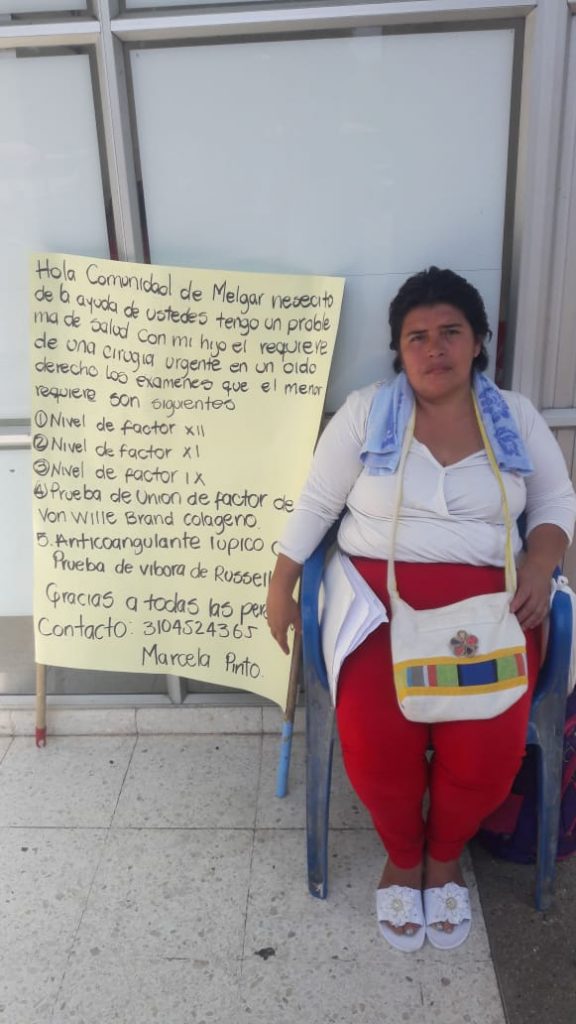 Hola Comunidad de Melgar nesecito
de la ayuda de ustedes tengo un proble
ma de salud con mi hijo el requiere
de una cirugia urgente en un oido
derecho los examenes que el menor
requiere son siguientes
① Nivel de factor XII
② Nivel de factor XI
③ Nivel de factor IX
④ Prueba de Union de factor de
Von Wille Brand colageno.
5. Anticoangulante lupico
Prueba de vibora de Russell
Gracias a todas las per
Contacto: 3104524365
Marcela Pinto.